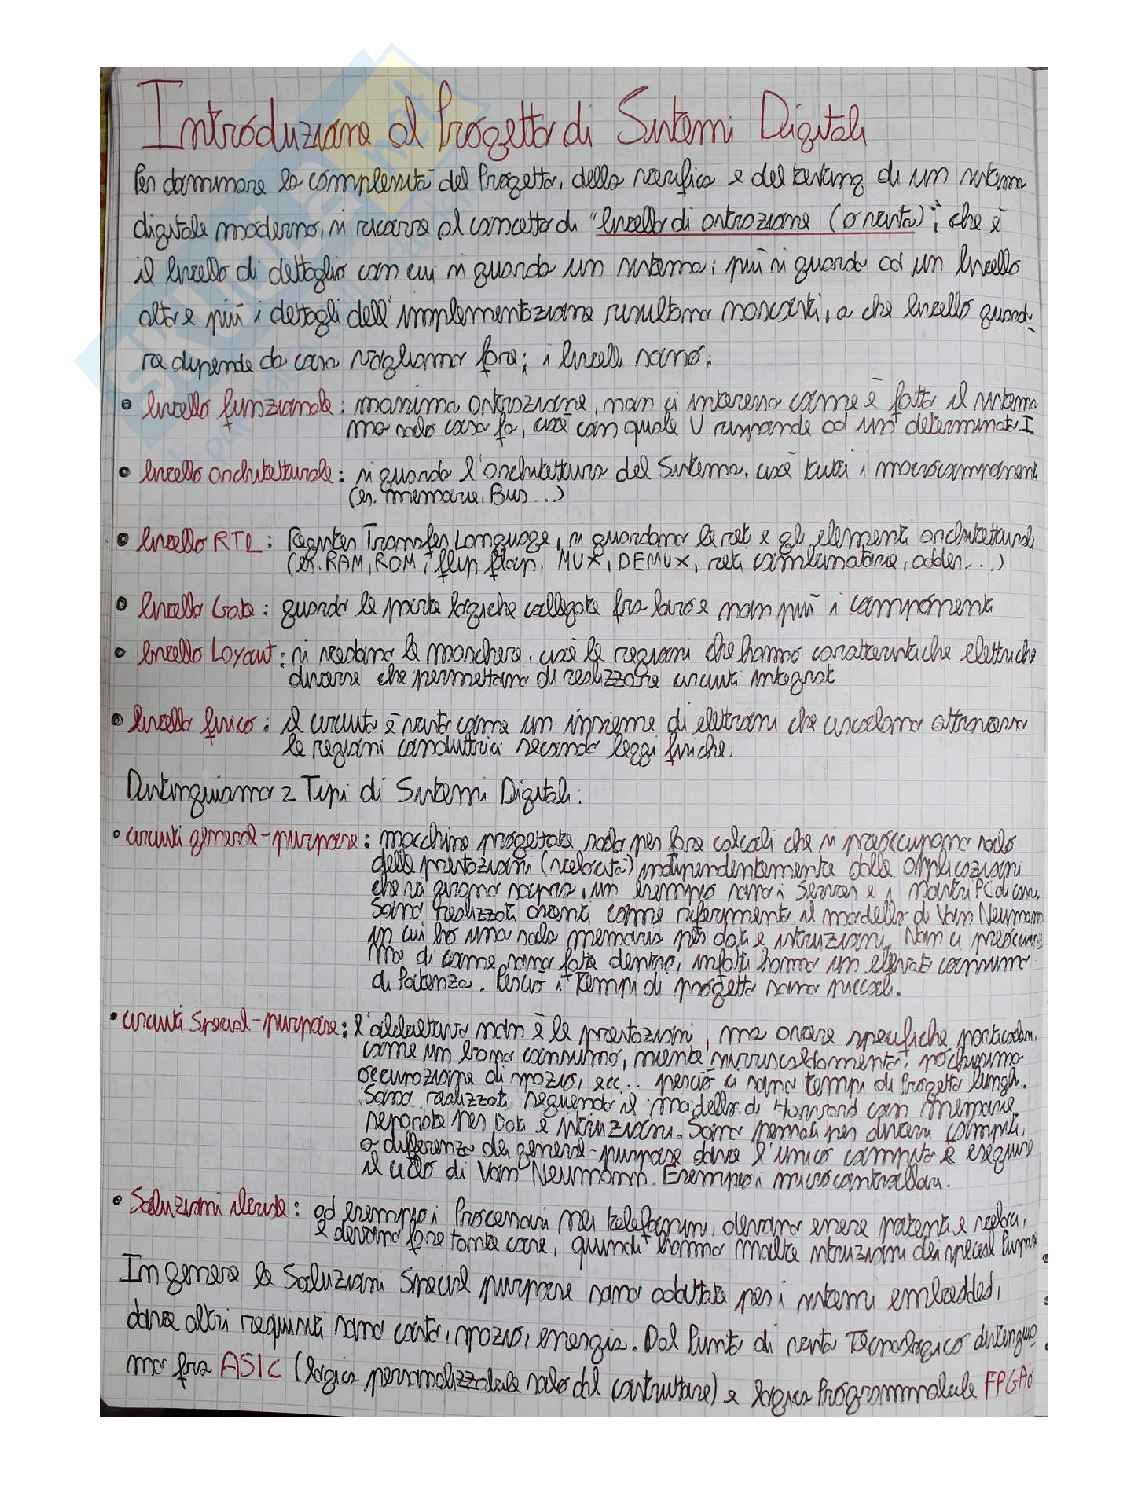 Introduzione al Progetto di Sistemi Digitali
Per dominare la complessità del Progetto, della verifica e del testing di un sistema
digitale moderno, si ricorre al concetto di "livello di astrazione (o vista)", che è
il livello di dettaglio con cui si guarda un sistema; più si guarda ad un livello
alto e più i dettagli dell'implementazione risultano nascosti, a che livello guard-
are dipende da cosa vogliamo fare; i livelli sono:
• livello funzionale: massima astrazione, non ci interessa come è fatto il sistema
ma solo cosa fa, cioè con quale U risponde ad un determinato I
• livello architetturale: si guarda l'architettura del Sistema, cioè tutti i macrocomponenti
(es. memorie, Bus...)
• livello RTL: Register Transfer Language, si guardano le reti e gli elementi architetturali
(es. RAM, ROM, flip flop, MUX, DEMUX, reti combinatorie, adder,...)
• livello Gate: guarda le porte logiche collegate fra loro e non più i componenti
• livello Layout: si vedono le maschere, cioè le regioni che hanno caratteristiche elettriche
diverse che permettono di realizzare circuiti integrati
• livello fisico: il circuito è visto come un insieme di elettroni che circolano attraverso
le regioni conduttrici secondo leggi fisiche.
Distinguiamo 2 Tipi di Sistemi Digitali:
• circuiti general-purpose: macchine progettate solo per fare calcoli che si preoccupano solo
delle prestazioni (velocità) indipendentemente dalle applicazioni
che ci girano sopra, un esempio sono i Server e i nostri PC di casa.
Sono realizzati avendo come riferimento il modello di Von Neumann
in cui ho una sola memoria per dati e istruzioni. Non ci preoccupia
mo di come sono fatti dentro, infatti hanno un elevato consumo
di Potenza. Perciò i Tempi di progetto sono piccoli.
• circuiti Special-purpose: l'obiettivo non è le prestazioni, ma avere specifiche particolari,
come un basso consumo, niente surriscaldamento, pochissima
occupazione di spazio, ecc.. perciò ci sono tempi di Progetto lunghi.
Sono realizzati seguendo il modello di Harvard con memorie
separate per Dati e istruzioni. Sono pensati per diversi compiti,
a differenza dei general-purpose dove l'unico compito è eseguire
il ciclo di Von Neumann. Esempio i microcontrollori.
• Soluzioni ibride: ad esempio i Processori nei telefonini, devono essere potenti e veloci,
e devono fare tante cose, quindi hanno molte istruzioni dei special Purpose
In genere le Soluzioni Special purpose sono adottate per i sistemi embedded,
dove altri requisiti sono costo, spazio, energia. Dal Punto di vista Tecnologico distinguia
mo fra ASIC (logica personalizzabile solo dal costruttore) e logica Programmabile FPGA o